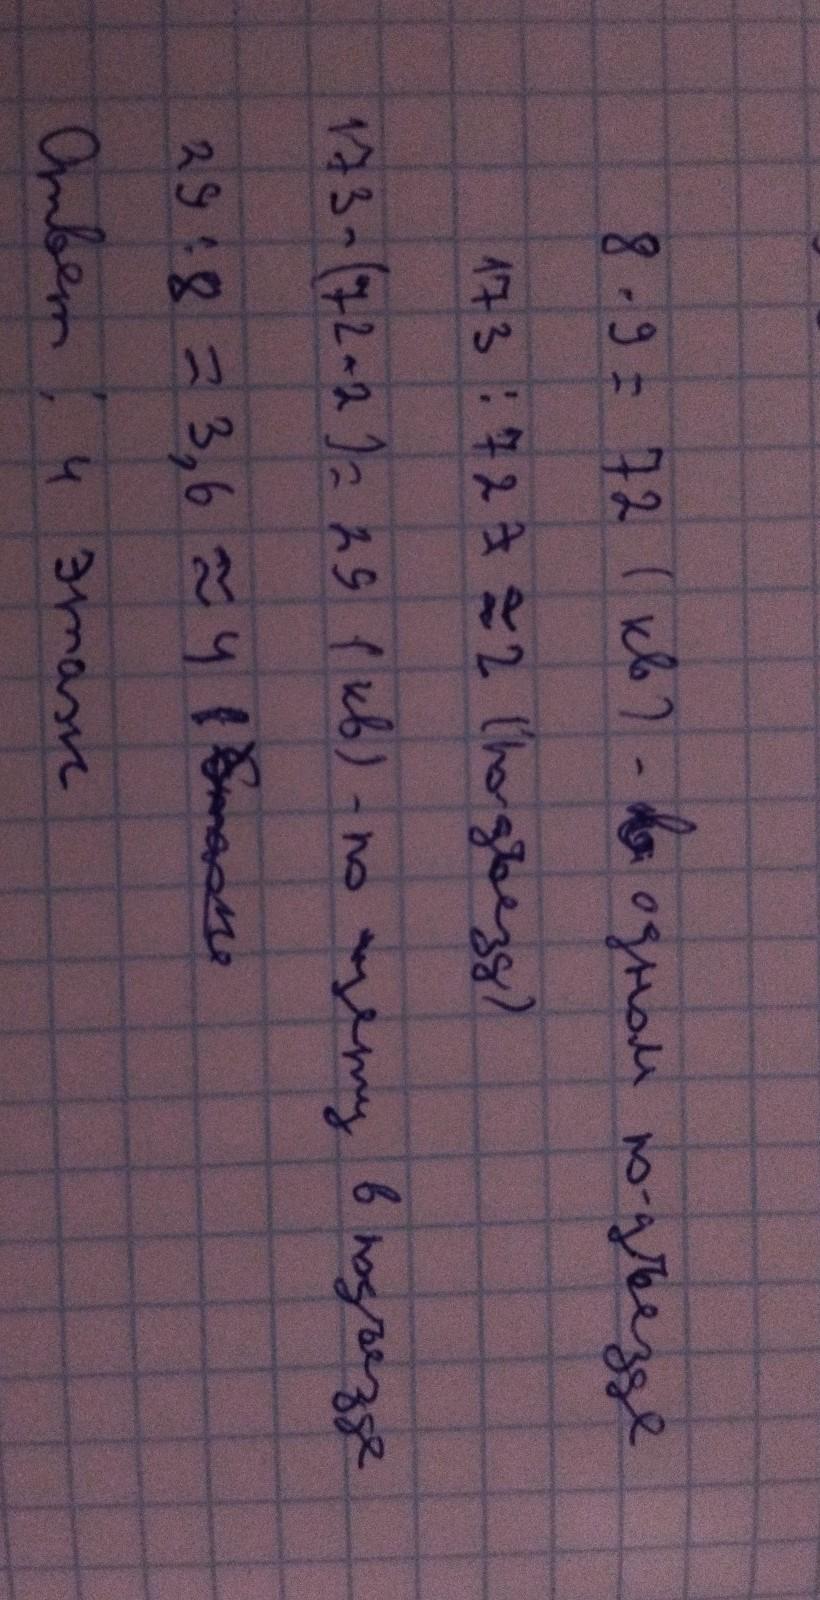 8 · 9 = 72 (кв) - в одном подъезде
173 : 72 ≈ 2 (подъезд)
173 - (72 · 2) = 29 (кв) - по счету в подъезде
29 : 8 = 3,6 ≈ 4
Ответ : 4 этаж